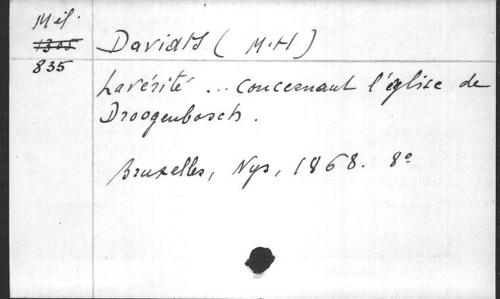 Mél.
1305
835
Davidts (M.H)
La vérité ... concernant l'église de
Droogenbosch.
Bruxelles, Nys, 1868. 8°